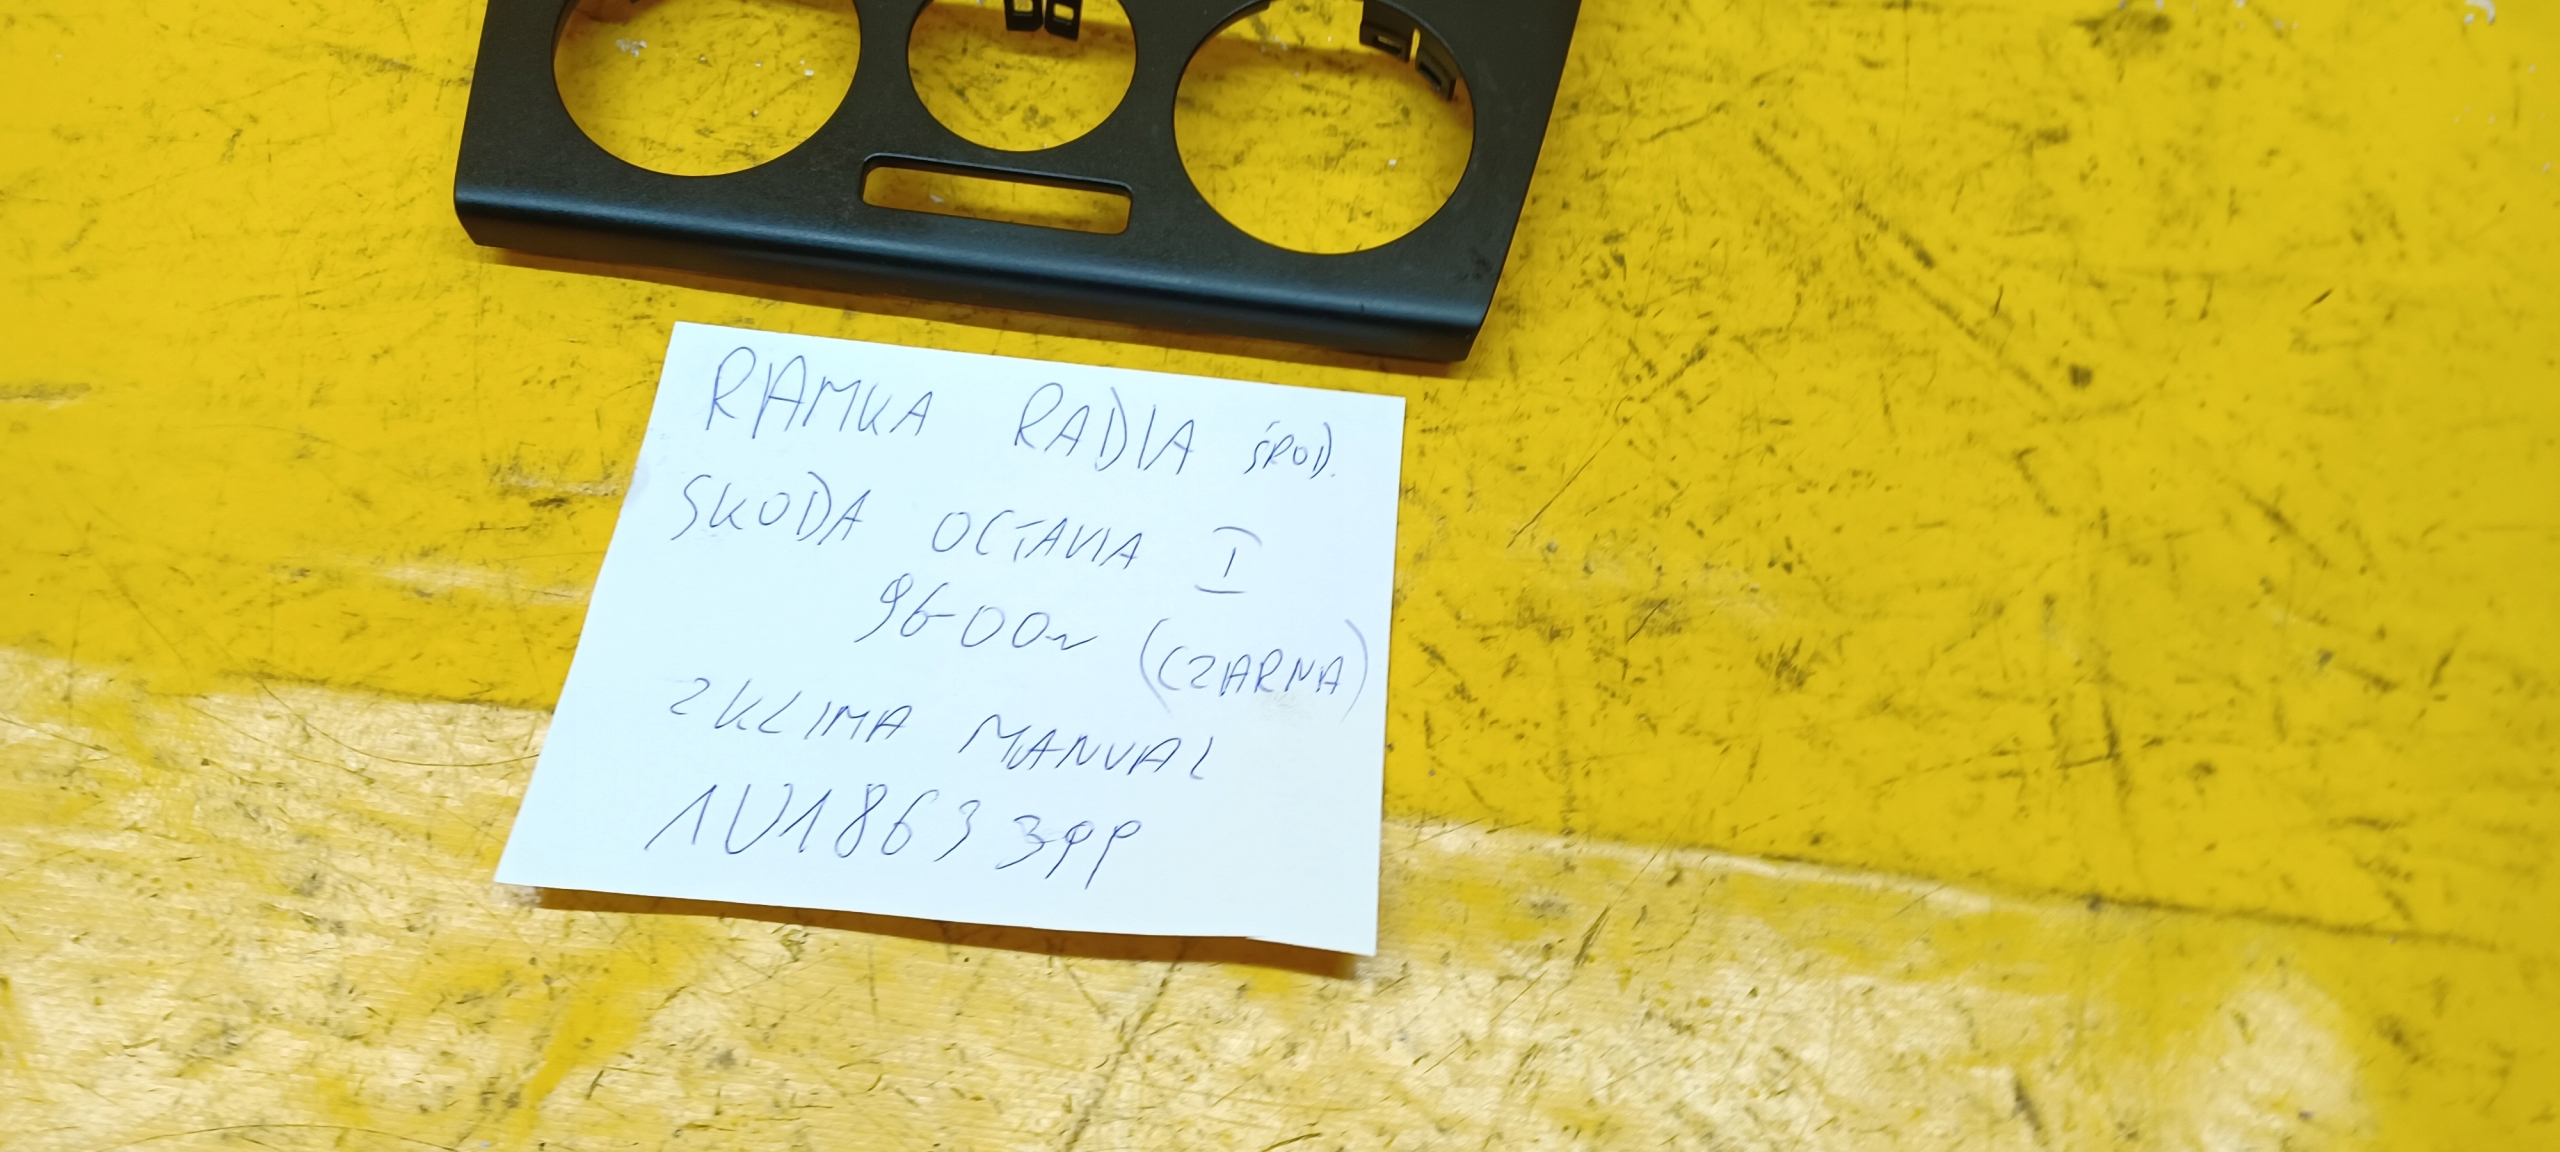 RAMKA RADIA ŚROD.
SKODA OCTAVIA I
96-00r (CZARNA)
Z KLIMA MANUAL
1U1863399